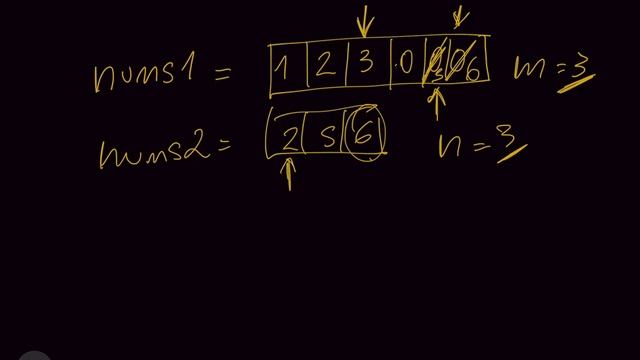 nums1 = 1 2 3 0 5 6 m=3
nums2= 2 5 6 n=3